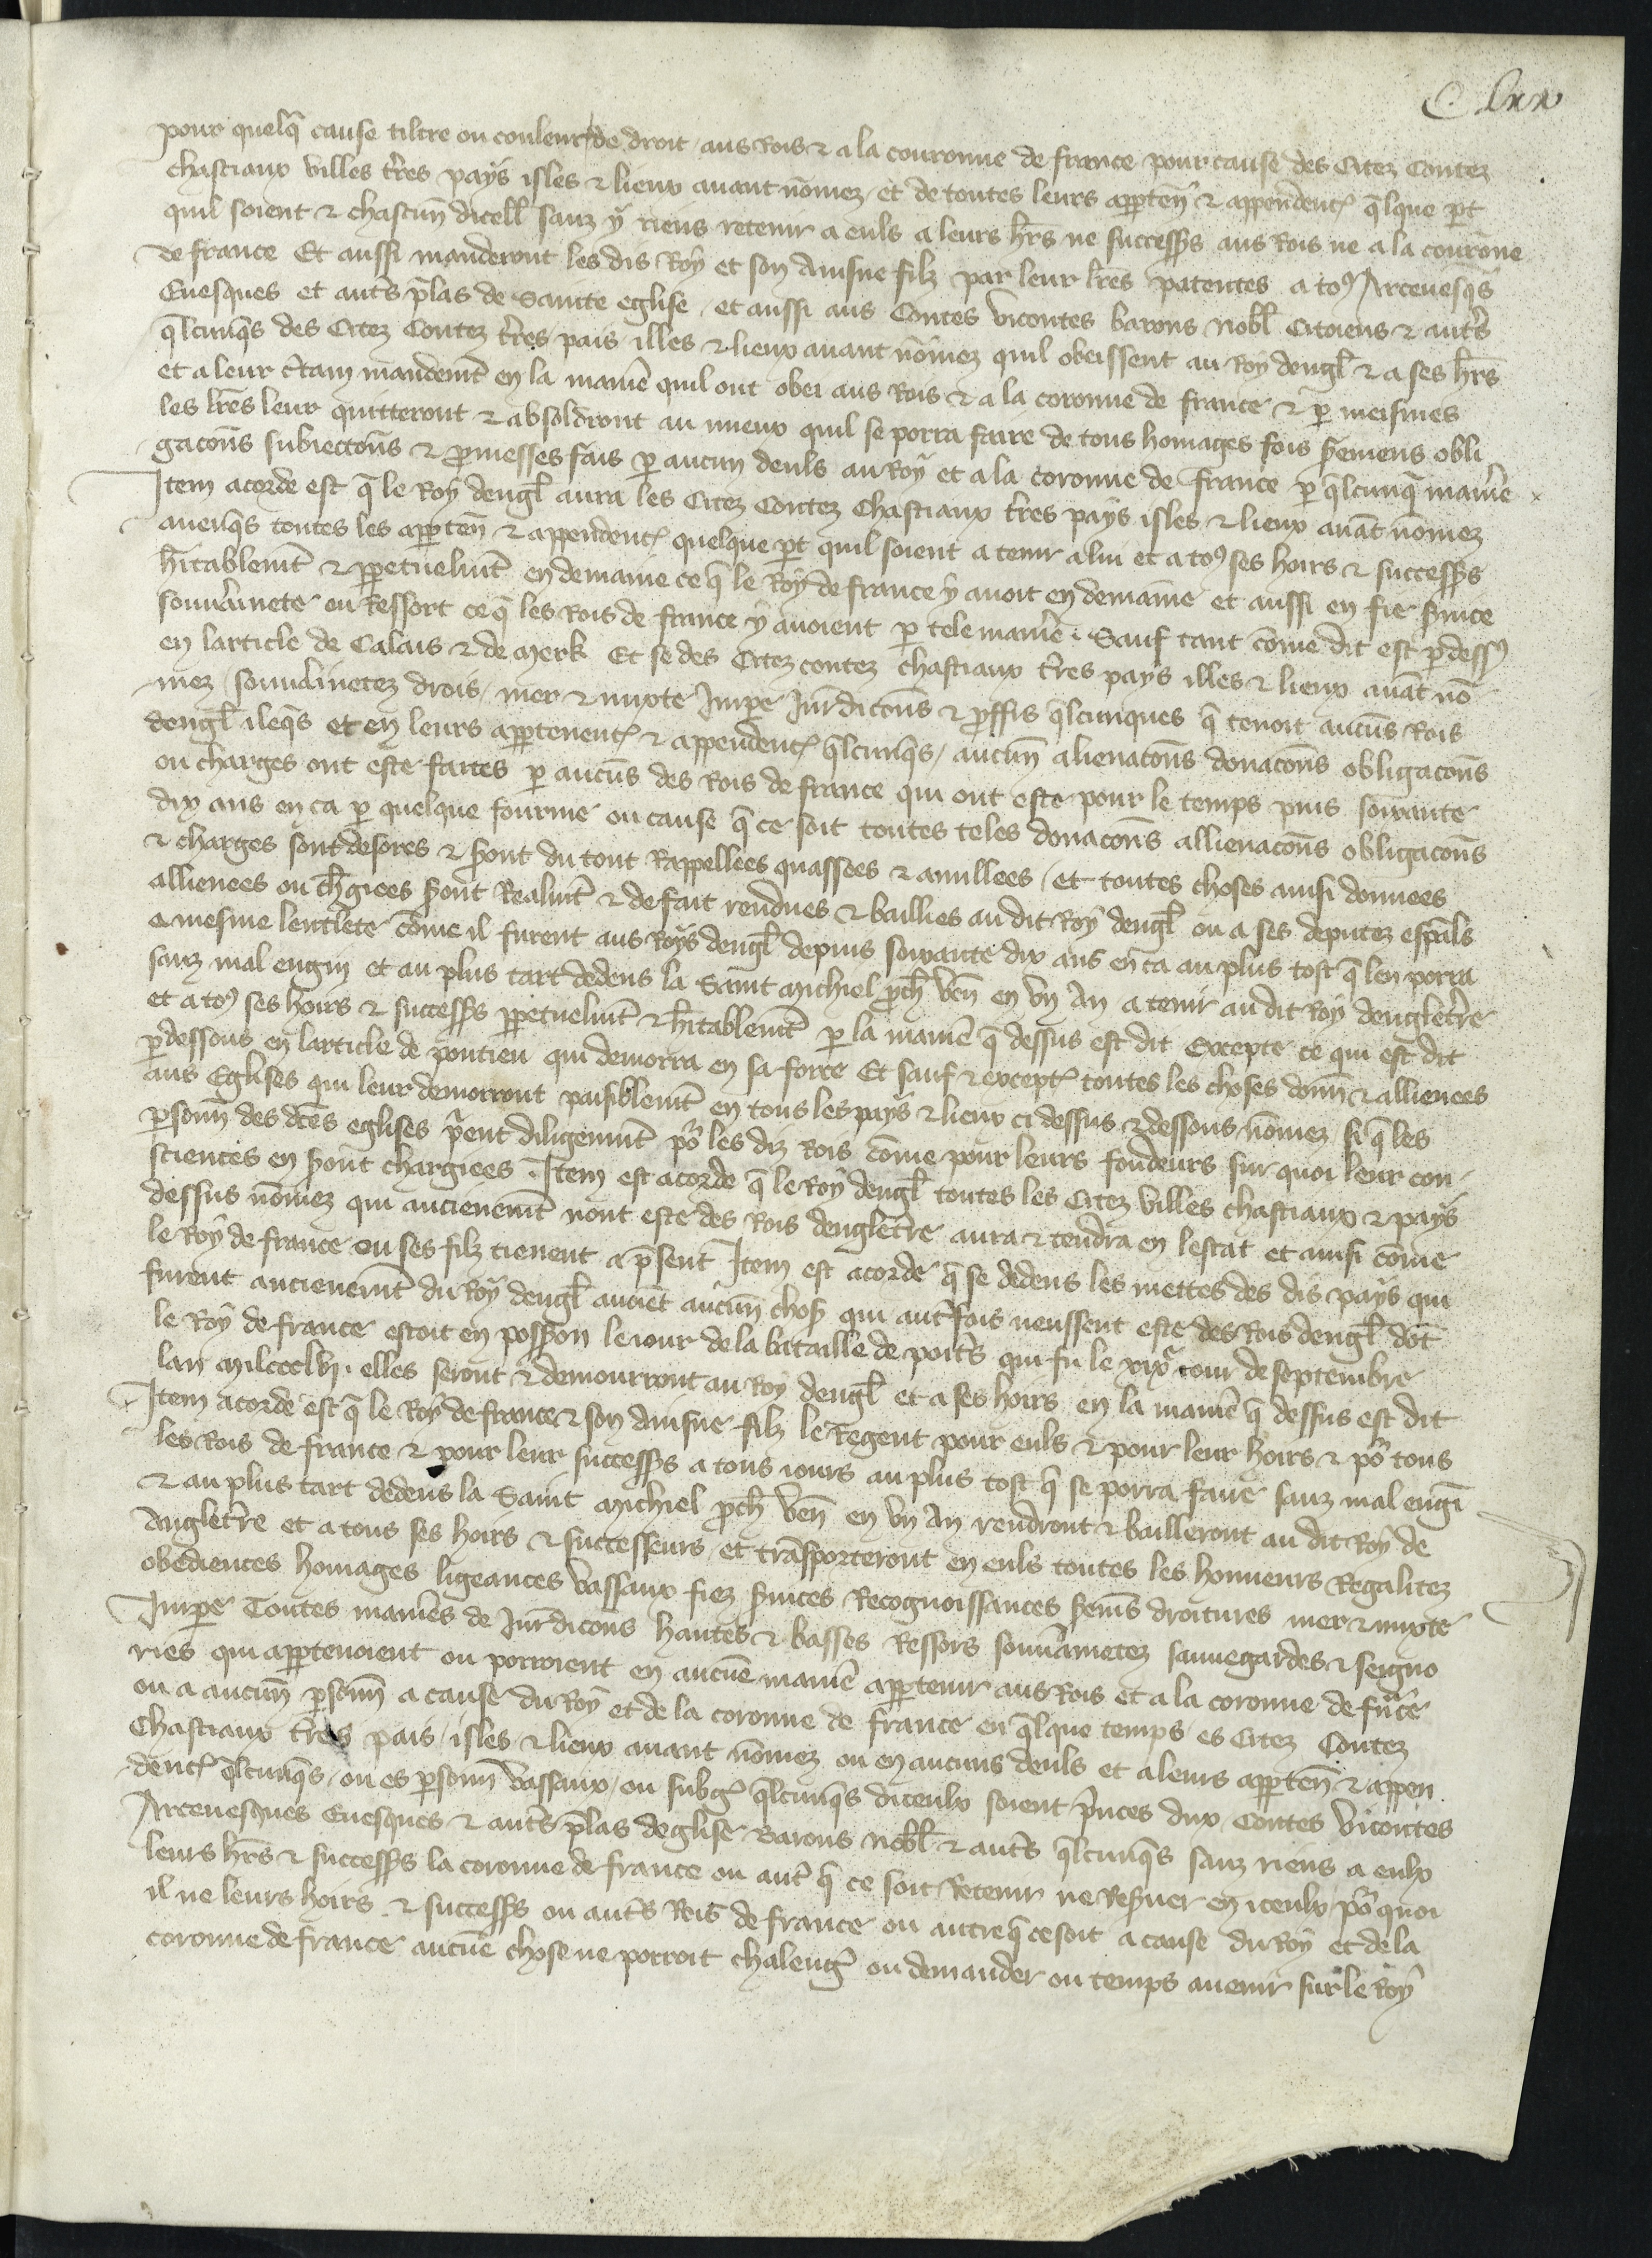 C lxx
pour quelq̄ cause tiltre ou couleur de droit aus Rois & a la couronne de france pour cause des Citez Contez
chastiaux villes t̃res pays isles & lieux auant nōmez et de toutes leurs apꝑteñ & appendent q̄lque ꝑt
quil soient & chascun̄ dicell̃ sanz y riens retenir a euls a leurs h̃rs ne success̃rs aus Rois ne a la courōne
de france Et aussi manderont les dis Roy et son Ainsne filz par leur l̃res patentes a toꝰ Arceuesq̄s
Euesques et aut̃s p̃las de Sainte eglise et aussi aus Contes vicontes barons nobl̃ Citoiens & aut̃s
q̄lcunq̄s des Citez Contez t̃res pais illes & lieux auant nōmez quil obeissent au Roy dengl̃ & a ses h̃rs
et a leur c̃tain mandemt̃ en la manie᷑ quil ont obei aus Rois & a la coronne de france & ꝑ meismes
les l̃res leur quitteront & absoldront au mieux quil se porra faire de tous homages fois s̃remens obli
gacōns subieccōns & ꝓmesses fais ꝑ aucun deuls au Roy et a la coronne de france ꝑ q̄lcunq̄ manie᷑
Item acorde est q̄ le Roy dengl̃ aura les Citez Contez Chastiaux t̃res pays isles & lieux auāt nōmez
auenq̄s toutes les apꝑten̄ & appendent quelque ꝑt quil soient a tenir a lui et a toꝰ ses hoirs & success̃rs
h̃itablemt̃ & ꝑpetuelmt̃ en demaine ce q̄ le Roy de france y auoit en demaine et aussi en fie s̃uice
souu̾ainete ou Ressort ce q̄ les Rois de france y auoient ꝑ tele manie᷑ . Sauf tant cōme dit est ꝑdessꝰ
en larticle de Calais & de Merk Et se des Citez contez chastiaux t̃res pays illes & lieux auāt nō
mez souu̾ainetez drois mer & mixte Imꝑe Iurdicōns & ꝓffis q̄lcunques q̄ tenoit aucūs Rois
dengl̃ ileq̄s et en leurs apꝑtenent & appendent q̄lcunq̄s aucun̄ alienacōns donacōns obligacōns
ou charges ont este faites ꝑ aucūs des Rois de france qui ont este pour le temps puis soixante
dix ans en ca ꝑ quelque fourme ou cause q̄ ce soit toutes teles donacōns allienacōns obligacōns
& charges sont desores & s̃ont du tout Rappellees quassees & anullees et toutes choses ainsi donnees
alliences ou ch̃giees s̃ont Realmt̃ & de fait rendues & baillies au dit Roy dengl̃ ou a ses deputez esp̃als
a mesme lentie᷑te cōme il furent aus Roys dengl̃ depuis soixante dix ans en ca au plus tost q̄ len porra
sanz mal engin et au plus tart dedens la Saint Michiel ꝓch̃ ven̄ en vn An a tenir au dit Roy dengleterre
et a toꝰ ses hoirs & success̃rs ꝑpetuelmt̃ & h̃itablemt̃ ꝑ la manie᷑ q̄ dessus est dit Excepte ce qui est dit
ꝑdessous en larticle de pontieu qui demorra en sa force Et sauf & except toutes les choses donn̄ & alliences
aus Eglises qui leur demorront paisiblemt̃ en tous les pays & lieux ci dessus & dessous nōmez si q̄ les
ꝑsonn̄ des dc̃es eglises p̃ient diligenmt̃ po᷑ les diz Rois cōme pour leurs fondeurs sur quoi leur con
sciences en s̃ont chargiees . Item est acorde q̄ le Roy dengl̃ toutes les Citez villes chastiaux & pays
dessus nōmez qui ancienemt̃ nont este des Rois dengleterre aura & tendra en lestat et ainsi cōme
le Roy de france ou ses filz tienent a p̃sent Item est acorde q̄ se dedens les mettes des dis pays qui
furent ancienemt̃ du Roy dengl̃ auoiēt aucun̄ chos̃ qui aut̃fois neussent este des Rois dengl̃ dōt
le Roy de france estoit en poss̃ion le iour de la bataille de poit̃s qui fu le xixe iour de septembre
lan milccclvj . elles seront & demourront au Roy dengl̃ et a ses hoirs en la manie᷑ q̄ dessus est dit
Item acorde est q̄ le Roy de france & son Ainsne filz le Regent pour euls & pour leur hoirs & po᷑ tous
les Rois de france & pour leur success̃rs a tous iours au plus tost q̄ se porra faire sanz mal engī
& au plus tart dedens la Saint Michiel ꝓch̃ ven̄ en vn An rendront & bailleront au dit Roy de
Angleterre et a tous ses hoirs & successeurs et trāsporteront en euls toutes les honneurs Regalitez
obediences homages ligeances vassaux fiez s̃uices Recognoissances s̃em̄s droitures mer & mixte
Imꝑe Toutes manie᷑s de Iurdicōns hautes & basses Ressors souu̾ainetez sauuegardes & seigno
ries qui apꝑtenoient ou porroient en aucūe manie᷑ apꝑtenir aus Rois et a la coronne de fñce
ou a aucun̄ ꝑsonn̄ a cause du Roy et de la coronne de france en q̄lque temps es Citez Contez
Chastiaux t̃res pais isles & lieux auant nōmez ou en aucuns deuls et a leurs apꝑten̄ & appen
dent q̄lcunq̄s ou es ꝑsonn̄ vassaux ou subg̃ q̄lcunq̄s diceulx soient p̃nces dux Contes vicontes
Arceuesques Euesques & aut̃s p̃las deglise Barons nobl̃ & aut̃s q̄lcunq̄s sanz riens a eulx
leurs h̃rs & success̃rs la coronne de france ou aut̃ q̄ ce soit Retenir ne Res̃uer en iceulx po᷑ quoi
il ne leurs hoirs & success̃rs ou aut̃s Rois de france ou autre q̄ ce soit a cause du Roy et de la
coronne de france aucūe chose ne porroit chaleng̃ ou demander ou temps auenir sur le Roy